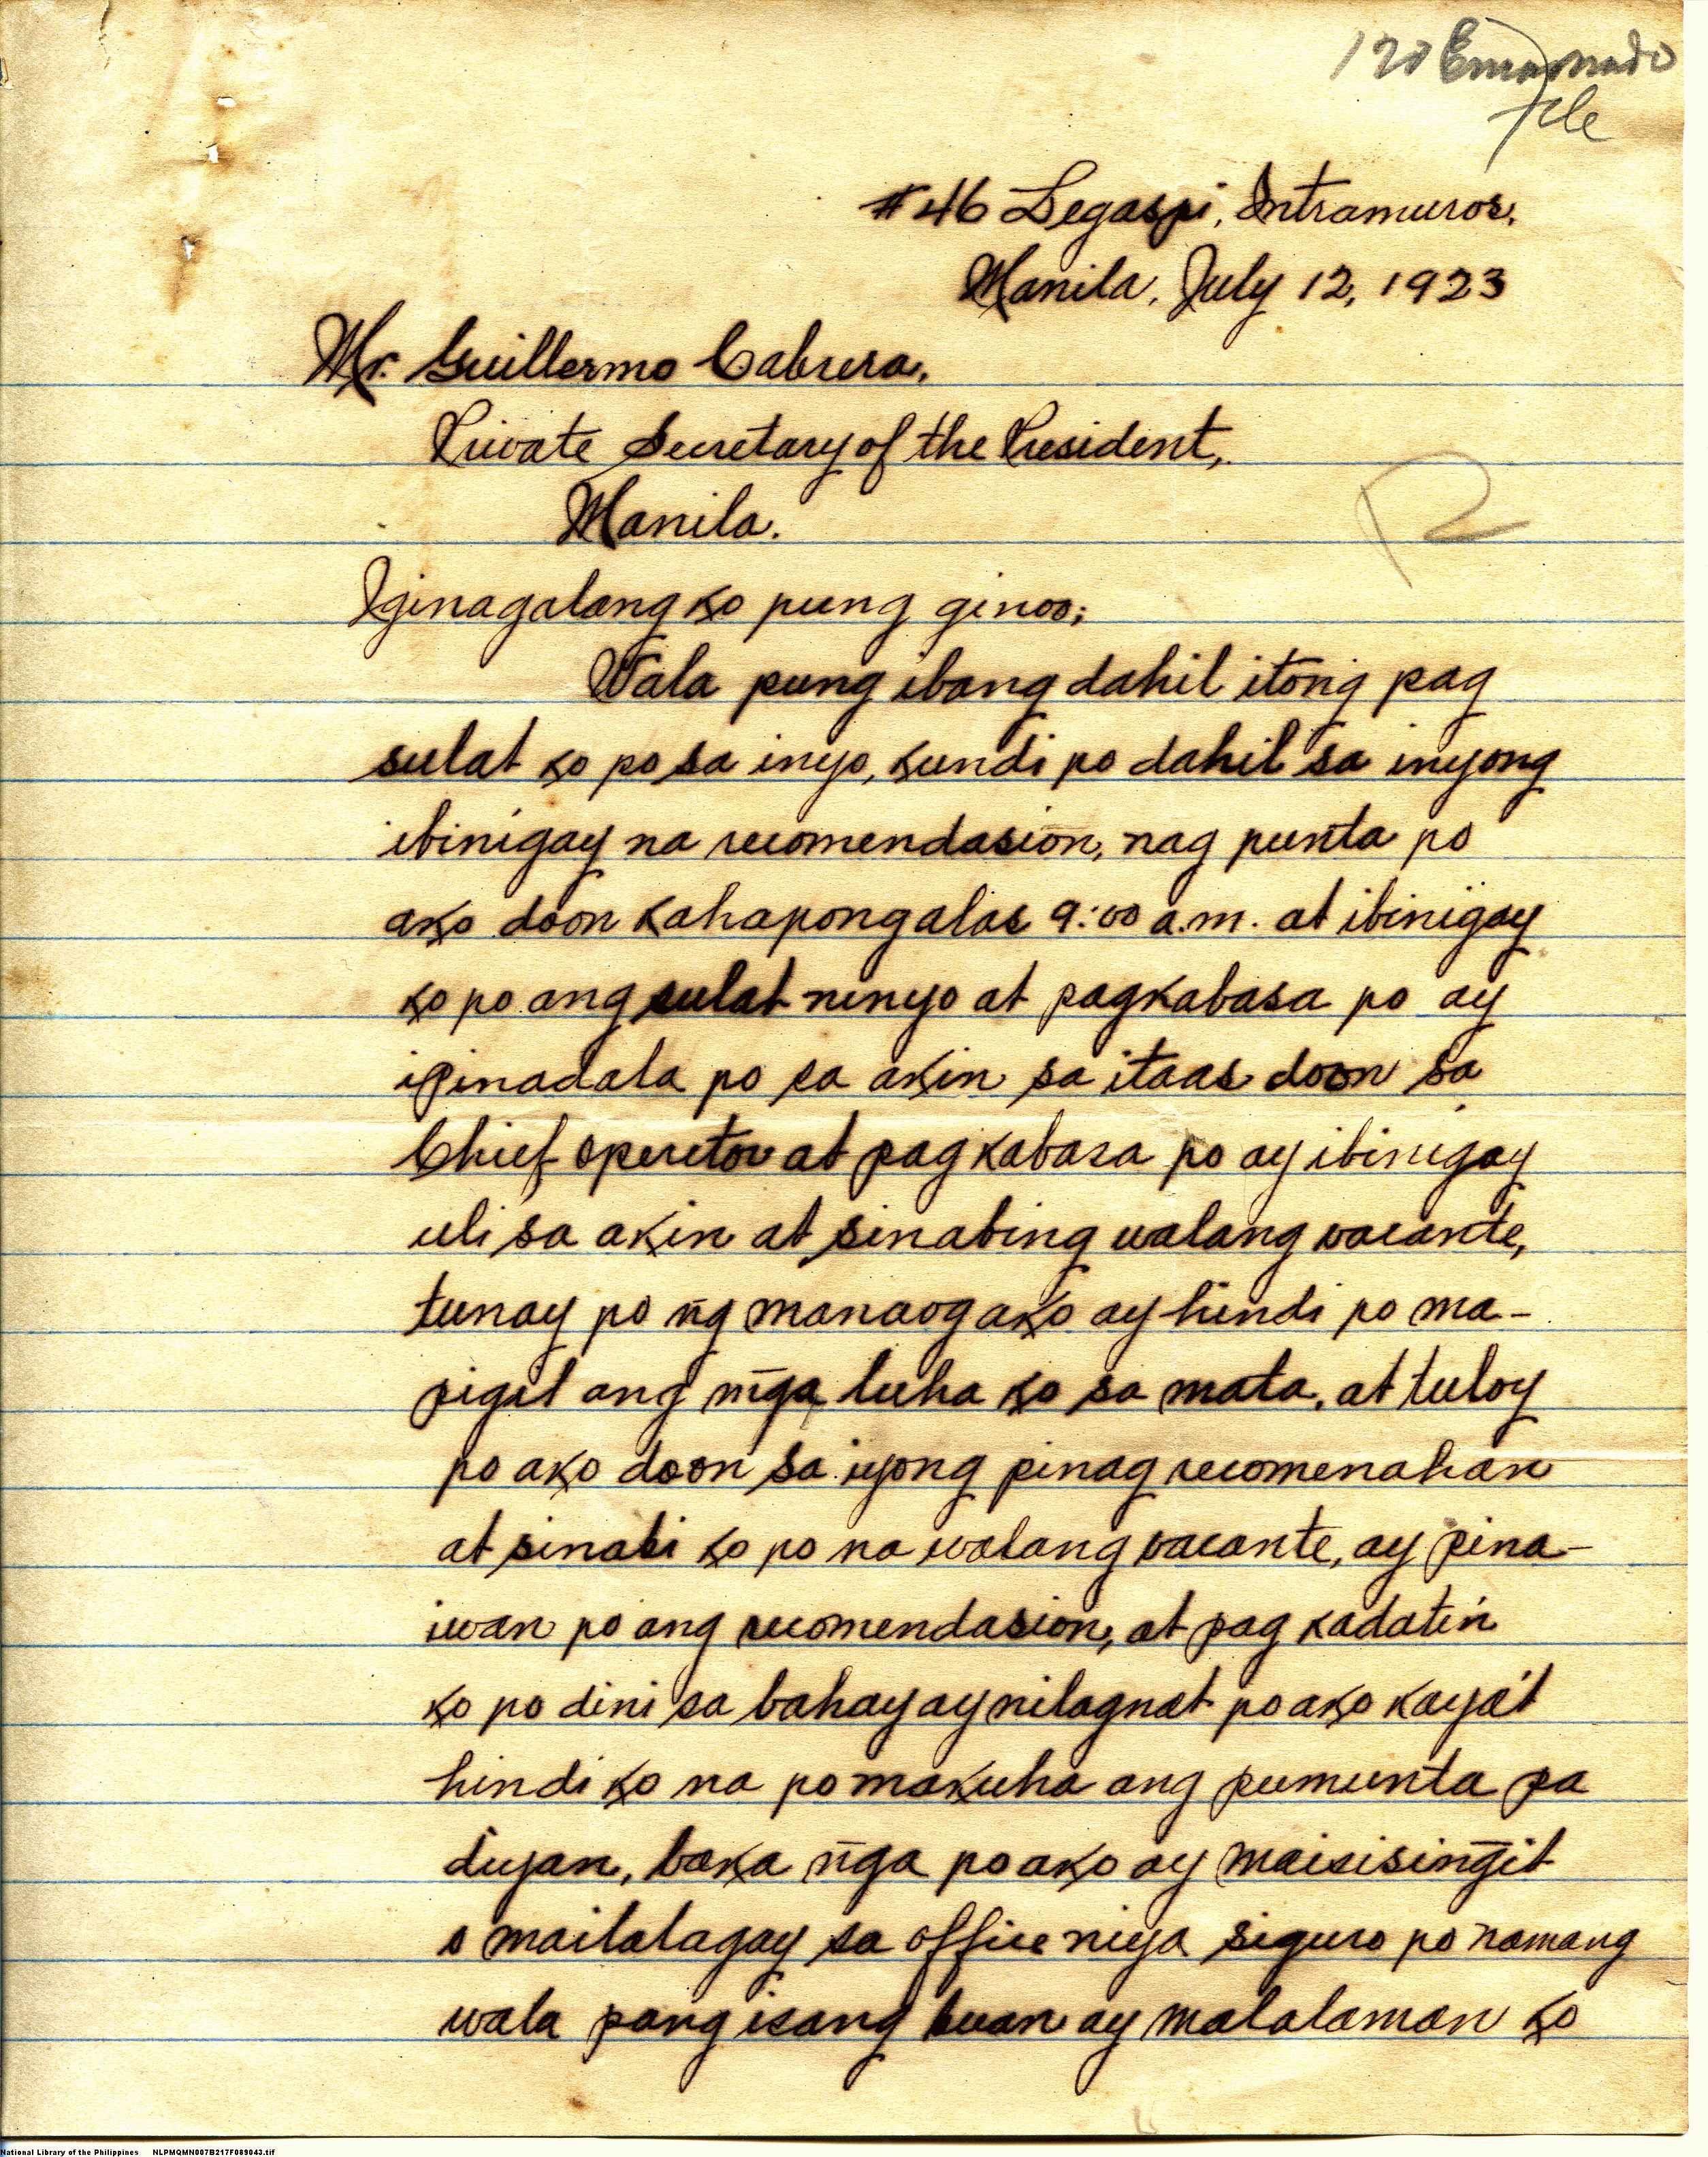 file
#46 Legaspi, Intramuros,
Manila, July 12, 1923
Mr. Guillermo Cabrera,
Private Secretary of the President,
Manila.
Iginagalang ko pung ginoo;
Wala pung ibang dahil itong pag
sulat ko po sa inyo, kundi po dahil sa inyong
ibinigay na recomendasion, nag punta po
ako doon kahapong alas 9:00 a.m. at ibinigay
ko po ang sulat ninyo at pagkabasa po ay
ipinadala po sa akin sa itaas doon sa
Chief operetor at pag kabasa po ay ibinigay
uli sa akin at sinabing walang vacante,
tunay po n͠g manaog ako ay hindi po ma-
pigil ang m͠ga luha ko sa mata, at tuloy
po ako doon sa iyong pinag recomenahan
at sinabi ko po na walang vacante, ay pina-
iwan po ang recomendasion, at pag kadatin
ko po dini sa bahay ay nilagnat po ako kaya't
hindi ko na po makuha ang pumunta pa
diyan, baka n͠ga po ako ay maisisin͠git
o mailalagay sa office niya siguro po namang
wala pang isang buan ay malalaman ko
National Library of the Philippines NLPMQMN007B217F089043.tif